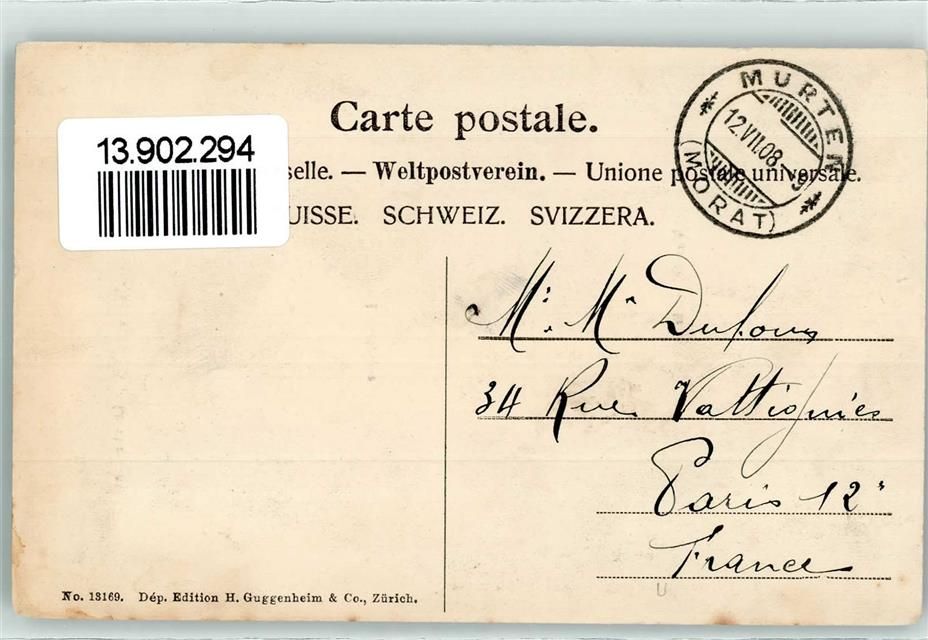 Carte postale.
13.902.294
selle. — Weltpostverein. — Unione postale universale.
UISSE. SCHWEIZ. SVIZZERA.
MURTEN
12.VII.08. - 9
(MORAT)
Mr. Mme Dufour
34 Rue Wattignies
Paris 12e
France
No. 13169. Dép. Edition H. Guggenheim & Co., Zürich.